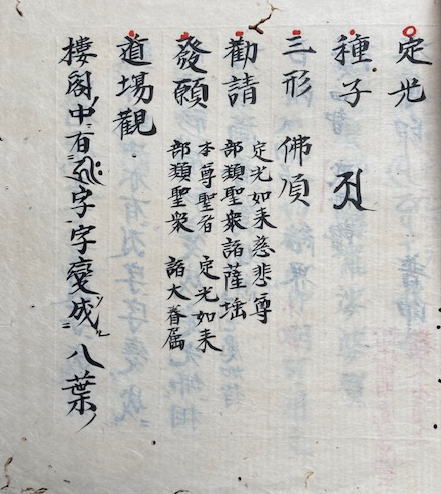 定光
種子
三形 佛頂
勸請
定光如来慈悲尊
部類聖衆諸薩埵
發願
本尊聖者 定光如来
部類聖衆 諸大眷属
道場觀
樓閣中有字字變成八葉